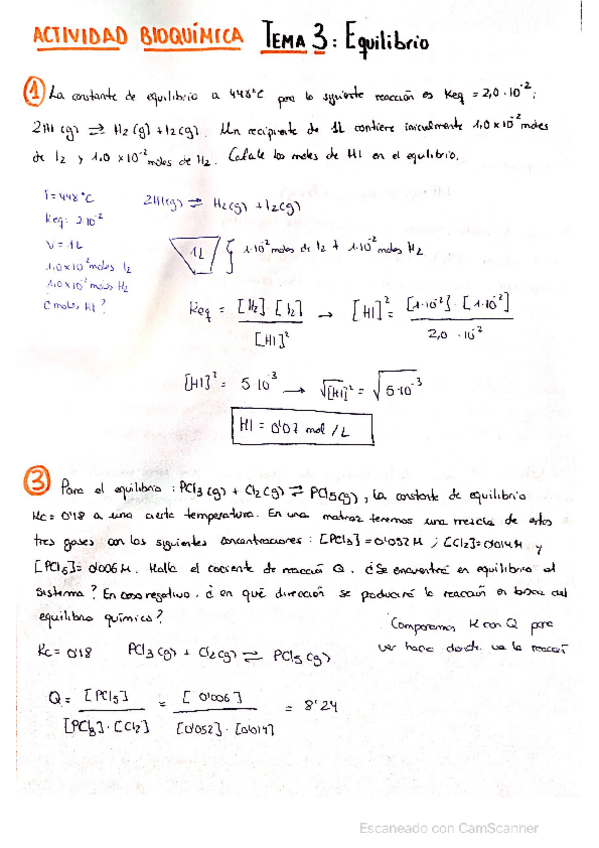 ACTIVIDAD BIOQUÍMICA TEMA 3: Equilibrio
① La constante de equilibrio a 448°C para la siguiente reacción es Keq = 2,0·10⁻²:
2HI (g) ⇌ H₂ (g) + I₂(g). Un recipiente de 1L contiene inicialmente 1,0 × 10⁻² moles
de I₂ y 1,0 × 10⁻² moles de H₂. Calcule los moles de HI en el equilibrio.
T = 448°C
Keq: 2·10⁻²
V = 1L
1,0×10⁻² moles I₂
1,0×10⁻² moles H₂
¿moles HI?
2HI(g) ⇌ H₂(g) + I₂(g)
1L { 1·10⁻² moles de I₂ + 1·10⁻² moles H₂
Keq = [H₂]·[I₂] / [HI]² → [HI]² = [1·10⁻²]·[1·10⁻²] / 2,0·10⁻²
[HI]² = 5·10⁻³ → √[HI]² = √5·10⁻³
HI = 0'07 mol/L
③ Para el equilibrio: PCl₃(g) + Cl₂(g) ⇌ PCl₅(g), la constante de equilibrio
Kc = 0'18 a una cierta temperatura. En una matraz tenemos una mezcla de estos
tres gases con las siguientes concentraciones: [PCl₃] = 0'052 M; [Cl₂] = 0'014 M y
[PCl₅] = 0'006 M. Halla el cociente de reacción Q. ¿Se encuentra en equilibrio el
sistema? En caso negativo, ¿en qué dirección se producirá la reacción en busca del
equilibrio químico?
Comparamos K con Q para
ver hacia donde va la reacción
Kc = 0'18 PCl₃(g) + Cl₂(g) ⇌ PCl₅(g)
Q = [PCl₅] / [PCl₃]·[Cl₂] = [0'006] / [0'052]·[0'014] = 8'24
Escaneado con CamScanner